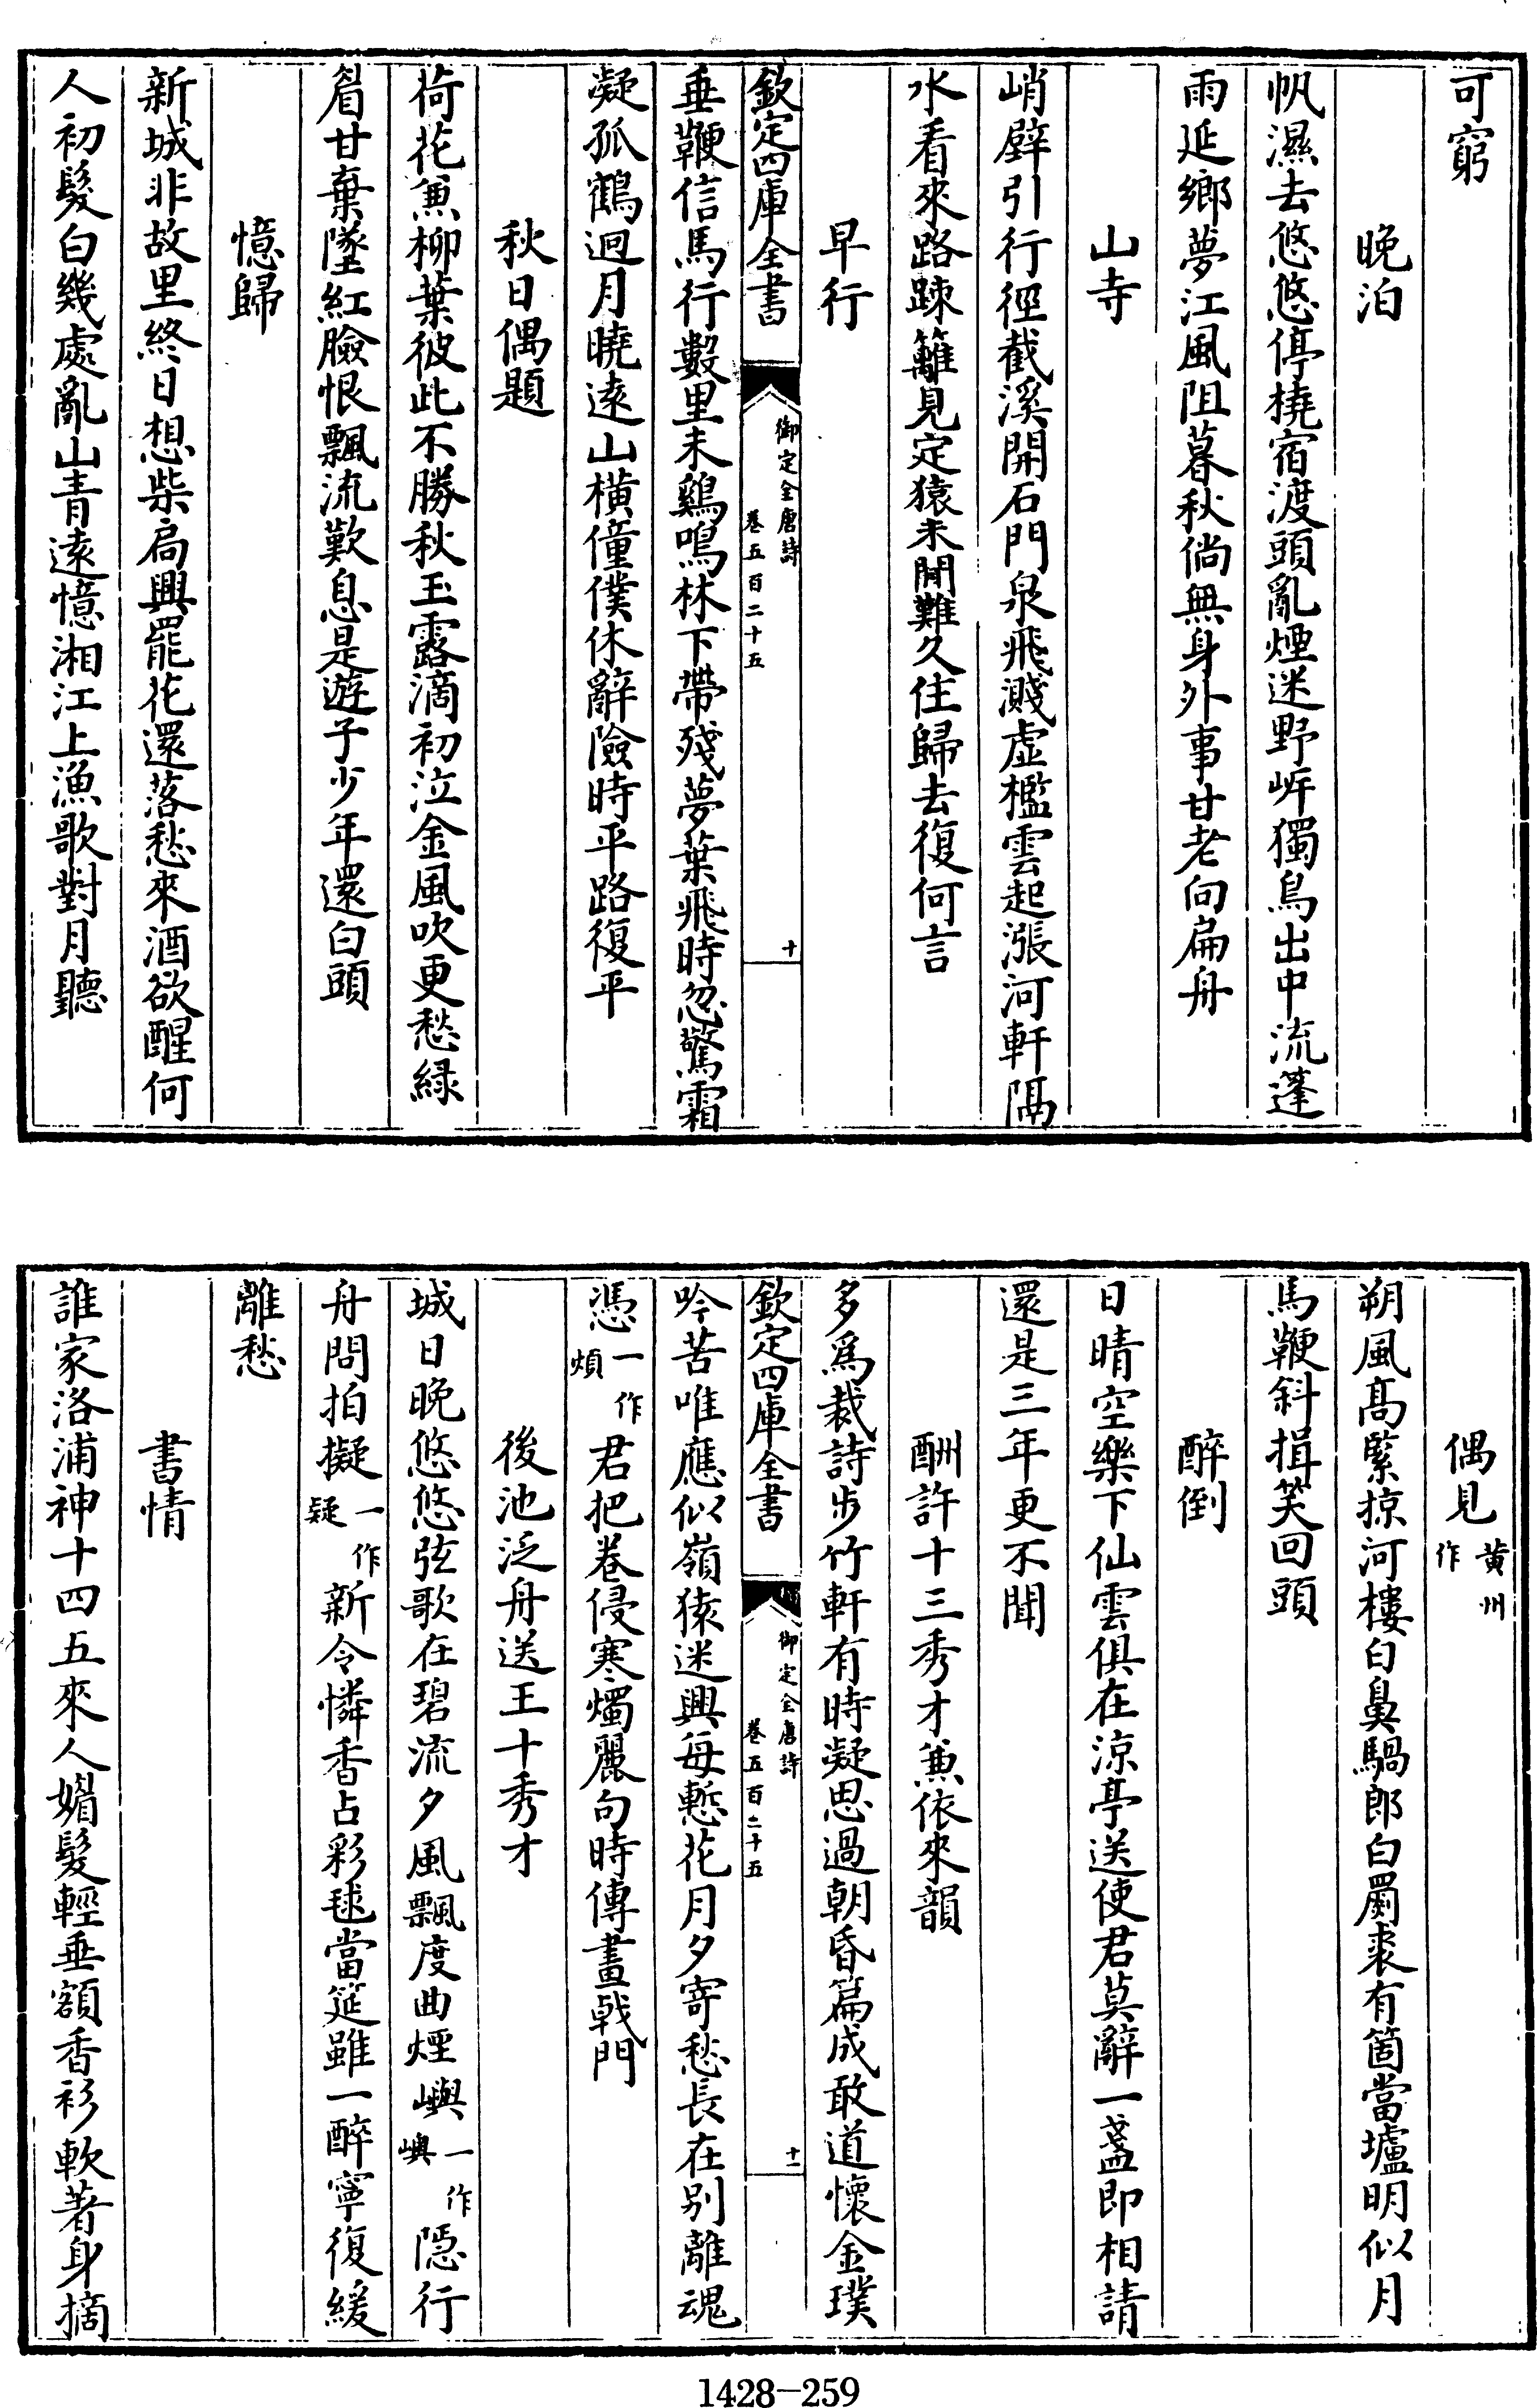 可窮
晚泊
帆濕去悠悠停橈宿渡頭亂煙迷野岸獨鳥出中流篷
雨延鄉夢江風阻暮秋倘無身外事甘老向扁舟
山寺
峭壁引行徑截溪開石門泉飛濺虛檻雲起漲河軒隔
水看來路疎籬見定猿未閒難久住歸去復何言
早行
欽定四庫全書
御定全唐詩
卷五百二十五
十
垂鞭信馬行數里未鷄鳴林下帶殘夢葉飛時忽驚霜
凝孤鶴迥月曉遠山橫僮僕休辭險時平路復平
秋日偶題
荷花兼柳葉彼此不勝秋玉露滴初泣金風吹更愁綠
眉甘棄墜紅臉恨飄流歎息是遊子少年還白頭
憶歸
新城非故里終日想柴扃興罷花還落愁來酒欲醒何
人初髮白幾處亂山青遠憶湘江上漁歌對月聽
偶見黃州作
朔風高緊掠河樓白鼻騧郎白罽裘有箇當壚明似月
馬鞭斜揖笑回頭
醉倒
日晴空樂下仙雲俱在涼亭送使君莫辭一盞即相請
還是三年更不聞
酬許十三秀才兼依來韻
多為裁詩步竹軒有時凝思過朝昏篇成敢道懷金璞
欽定四庫全書
御定全唐詩
卷五百二十五
十一
吟苦唯應似嶺猿迷興每慙花月夕寄愁長在別離魂
憑一作煩君把卷侵寒燭麗句時傳畫戟門
後池泛舟送王十秀才
城日晚悠悠弦歌在碧流夕風飄度曲煙嶼一作㠘隱行
舟問拍擬一作疑新令憐香占彩毬當筵雖一醉寧復緩
離愁
書情
誰家洛浦神十四五來人媚髮輕垂額香衫軟著身摘
1428—259